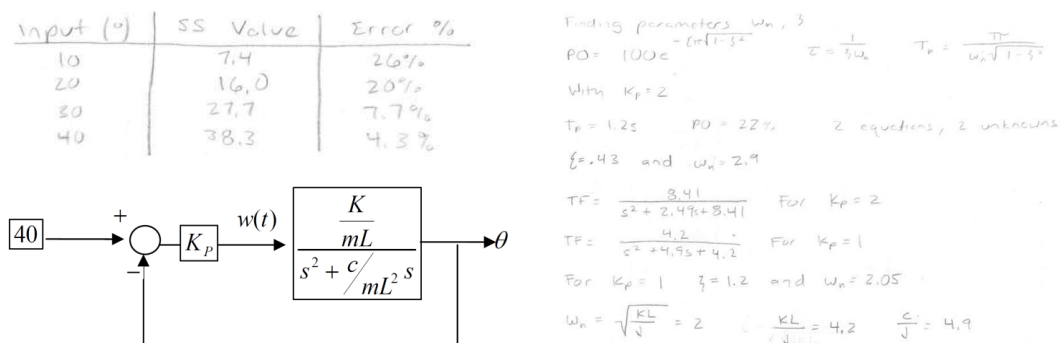 Input (°) SS Value Error %
10 7.4 26%
20 16.0 20%
30 27.7 7.7%
40 38.3 4.3%
40 + − K_P w(t) K/mL / s² + c/mL² s θ
Finding parameters ωn, ζ
PO = 100e^-ζπ√1-ζ² τ = 1/ζωn Tp = π/ωn√1-ζ²
With Kp = 2
Tp = 1.2s PO = 22% 2 equations, 2 unknowns
ξ = .43 and ωn = 2.9
TF = 8.41/s² + 2.49s + 8.41 For Kp = 2
TF = 4.2/s² + 4.9s + 4.2 For Kp = 1
For Kp = 1 ζ = 1.2 and ωn = 2.05
ωn = √KL/J = 2 KL/J = 4.2 c/J = 4.9